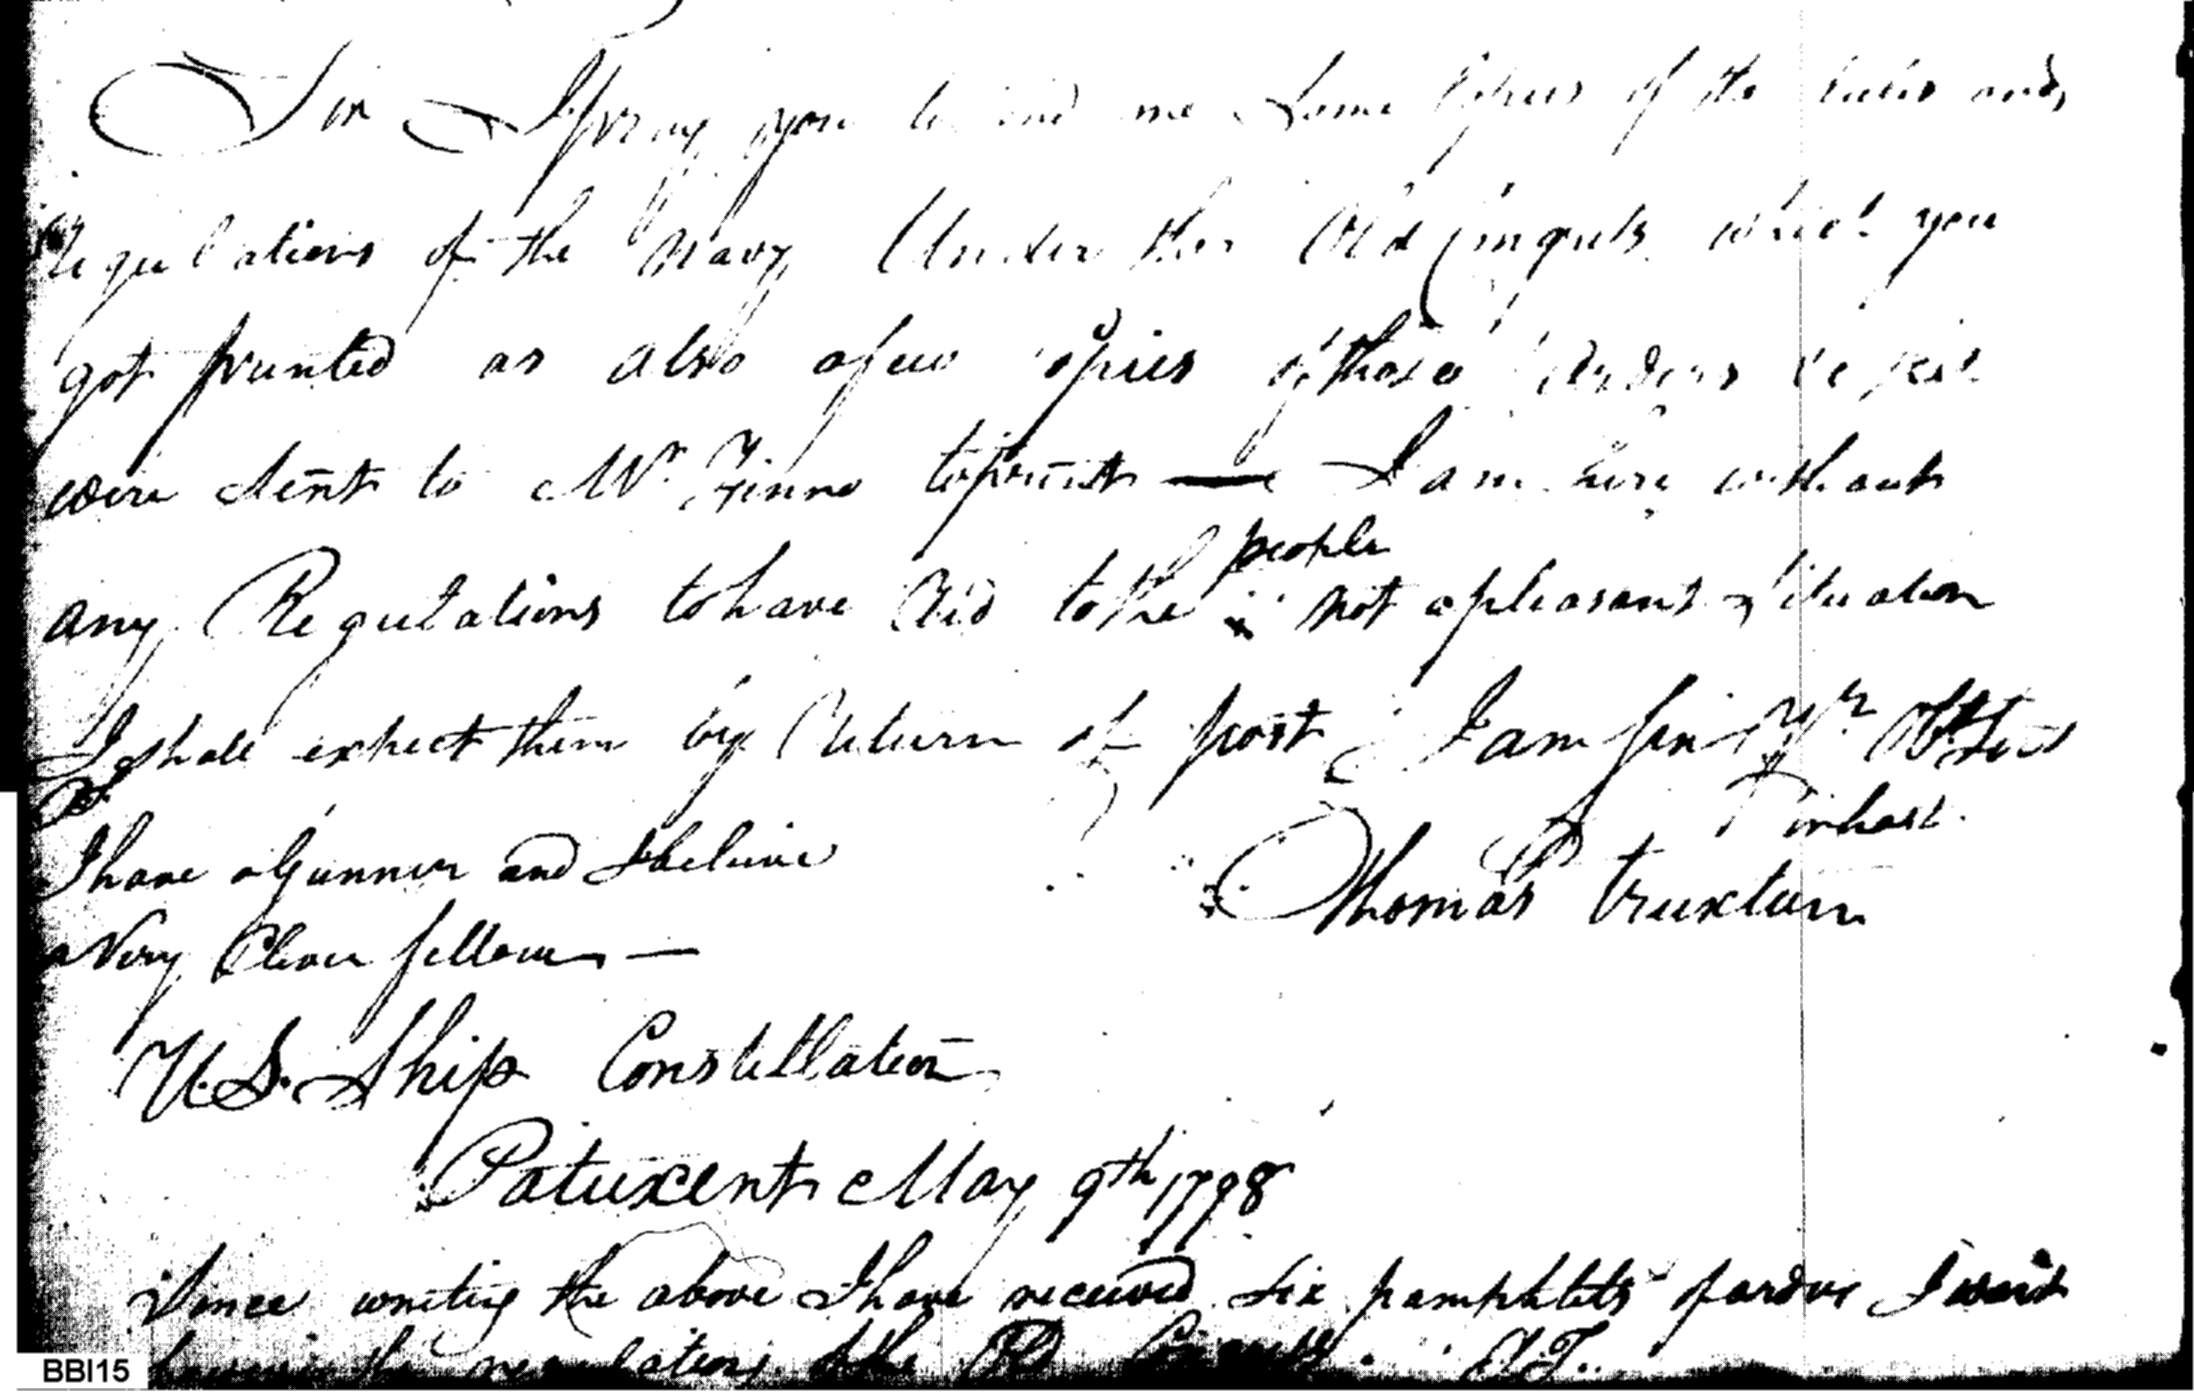 Sir I pray you to send me some Copies of the rules and
Regulations of the Navy Under the Old Congress which you
got printed as also a few Copies of those Orders
were sent to Mr. to print — I am here without
any Regulations to have Red to the people not a pleasant Situation
I shall expect them by Return of post I am Sir Yr. Obt
PS
I have a Gunner and I believe
Thomas Truxtun
a Very Clever fellow —
U.S. Ship Constellation
Patuxent May 9th 1798
Since writing the above I have received six pamphlets of ardor I want
regulations of the Old Congress. T.T.
BBI15